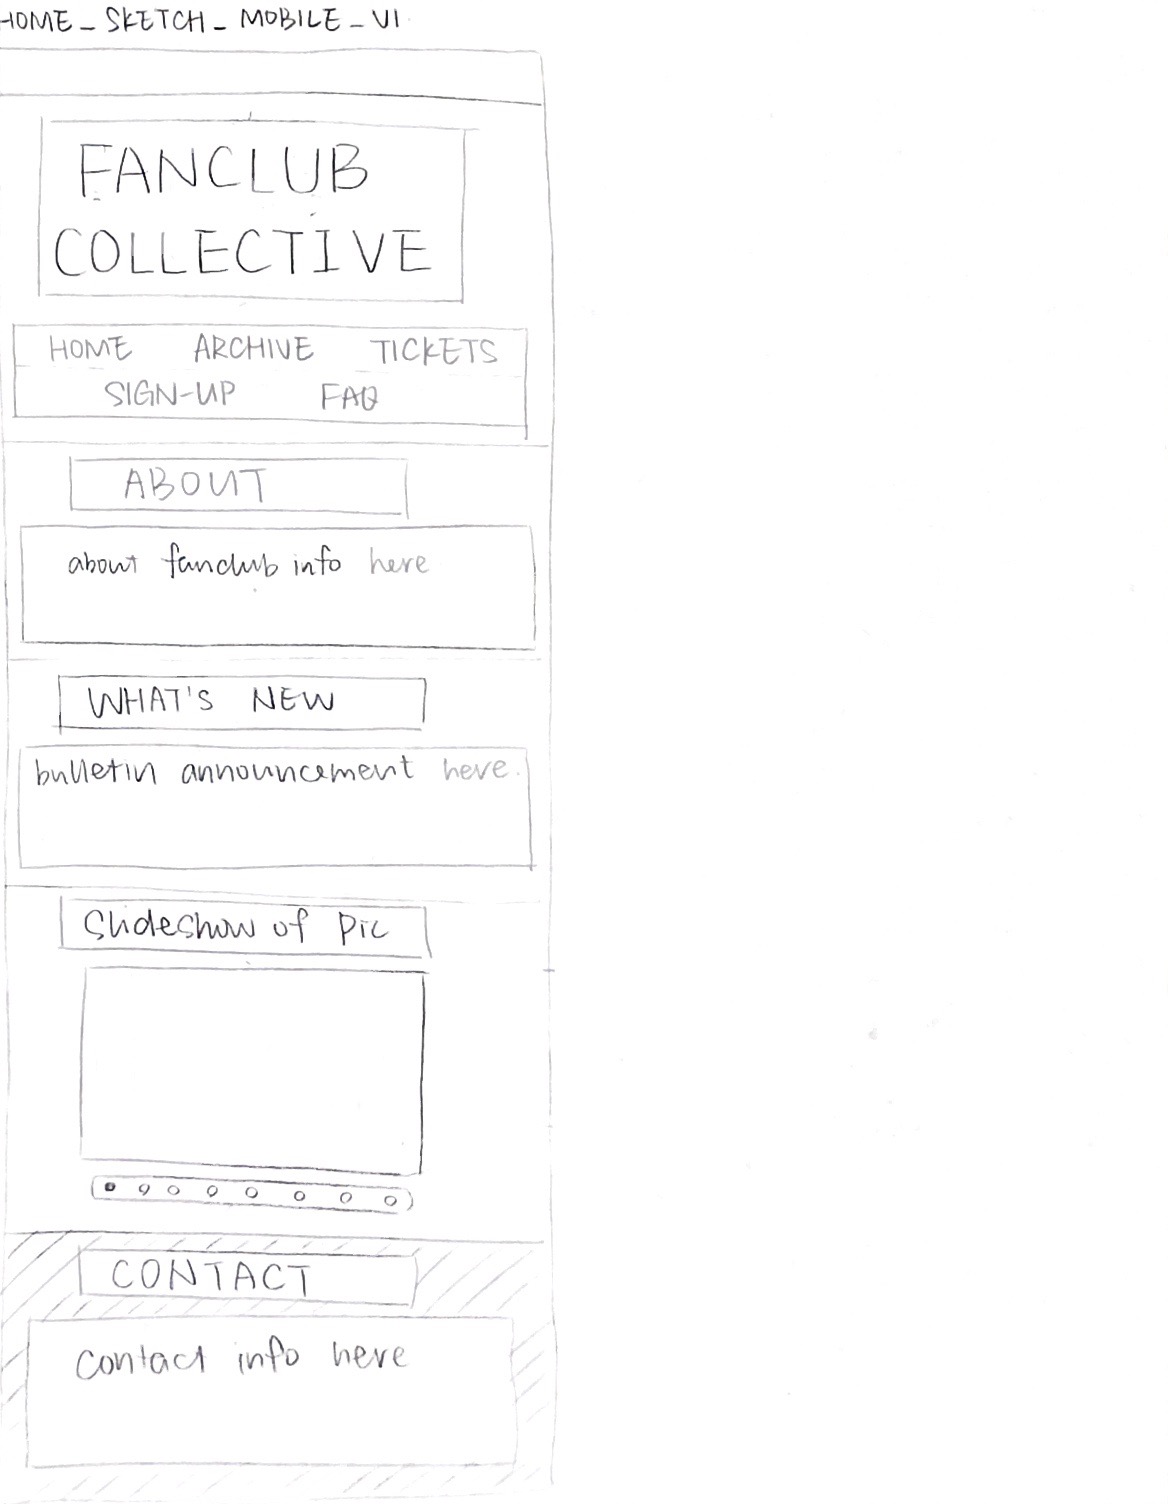 HOME_SKETCH_MOBILE_V1
FANCLUB
COLLECTIVE
HOME ARCHIVE TICKETS
SIGN-UP FAQ
ABOUT
about fanclub info here
WHAT'S NEW
bulletin announcement here.
Slideshow of Pic
CONTACT
contact info here